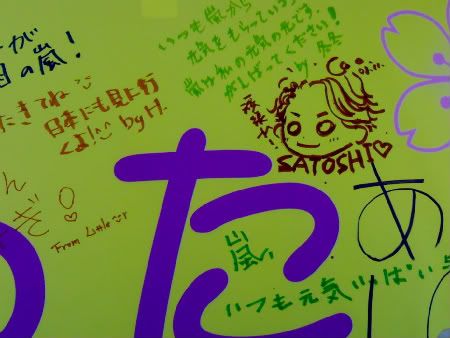 が
の嵐!
たきてね
日本にも見に行
くよ!! by H.
いつも嵐から
元気をもらっている
嵐は私の元気の元です
がんばってください!
by
SATOSHI♡
ん
ぎ
From Little
た
あ
嵐、
いつも元気いっぱい